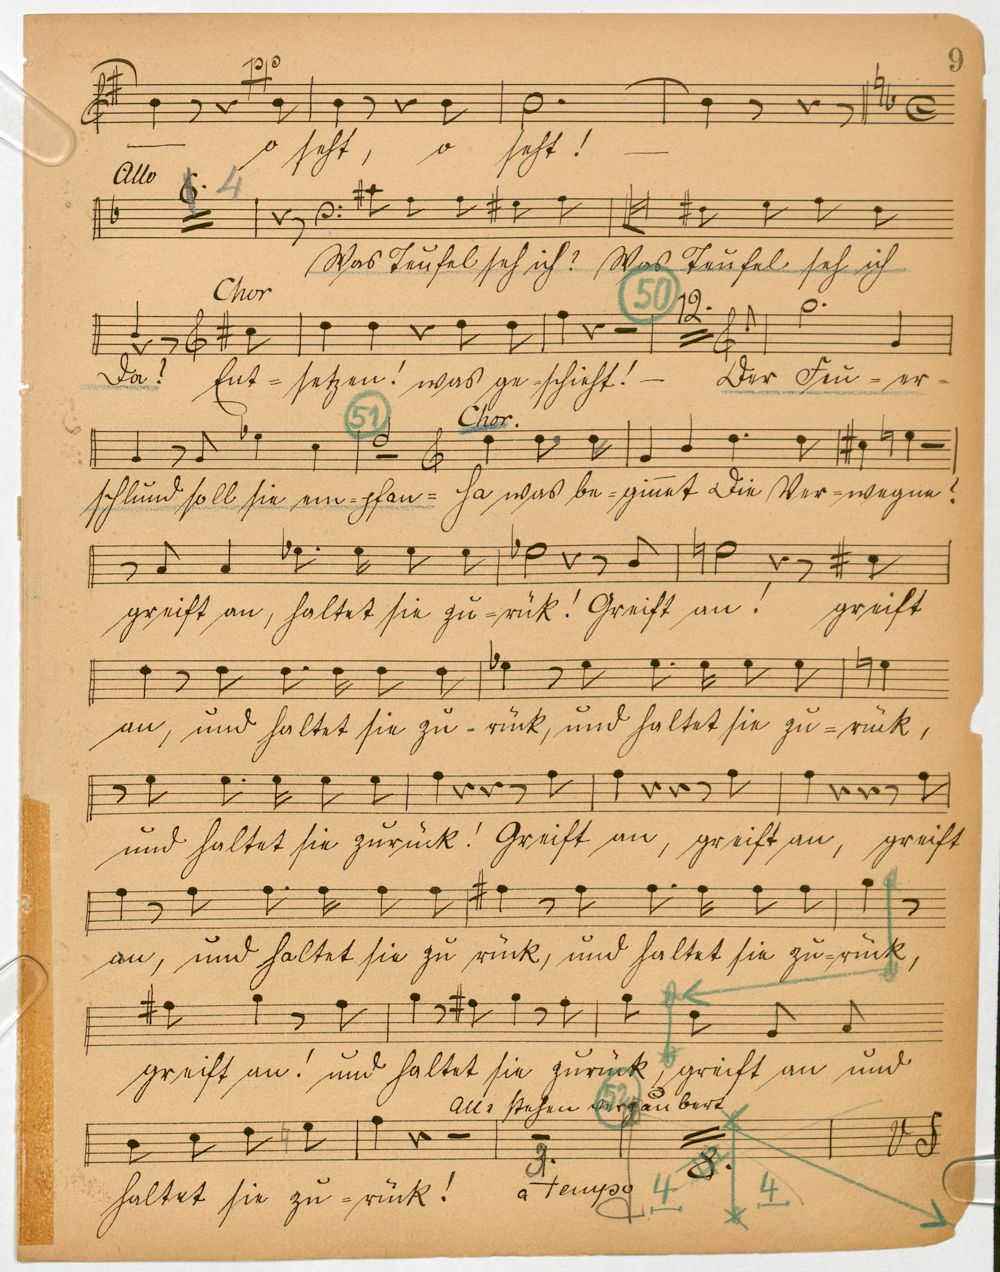 9
pp
o seht, o seht! —
Allo 6. 4
Was Teufel seh ich? Was Teufel seh ich
Chor 50 12.
Da? Ent-setzen! was ge-schieht! — Der Feu-er-
51 Chor.
schlund soll sie em-pfan- Ha was be-ginnet Die Ver-wegne?
greift an, haltet sie zu-rük! Greift an! greift
an, und haltet sie zu-rük, und haltet sie zu-rük,
und haltet sie zurük! Greift an, greift an, greift
an, und haltet sie zu rük, und haltet sie zu-rük,
greift an! und haltet sie zurük, greift an und
52
Alle stehen verzaubert
haltet sie zu-rük! 3. a Tempo 8. 4 4
VS